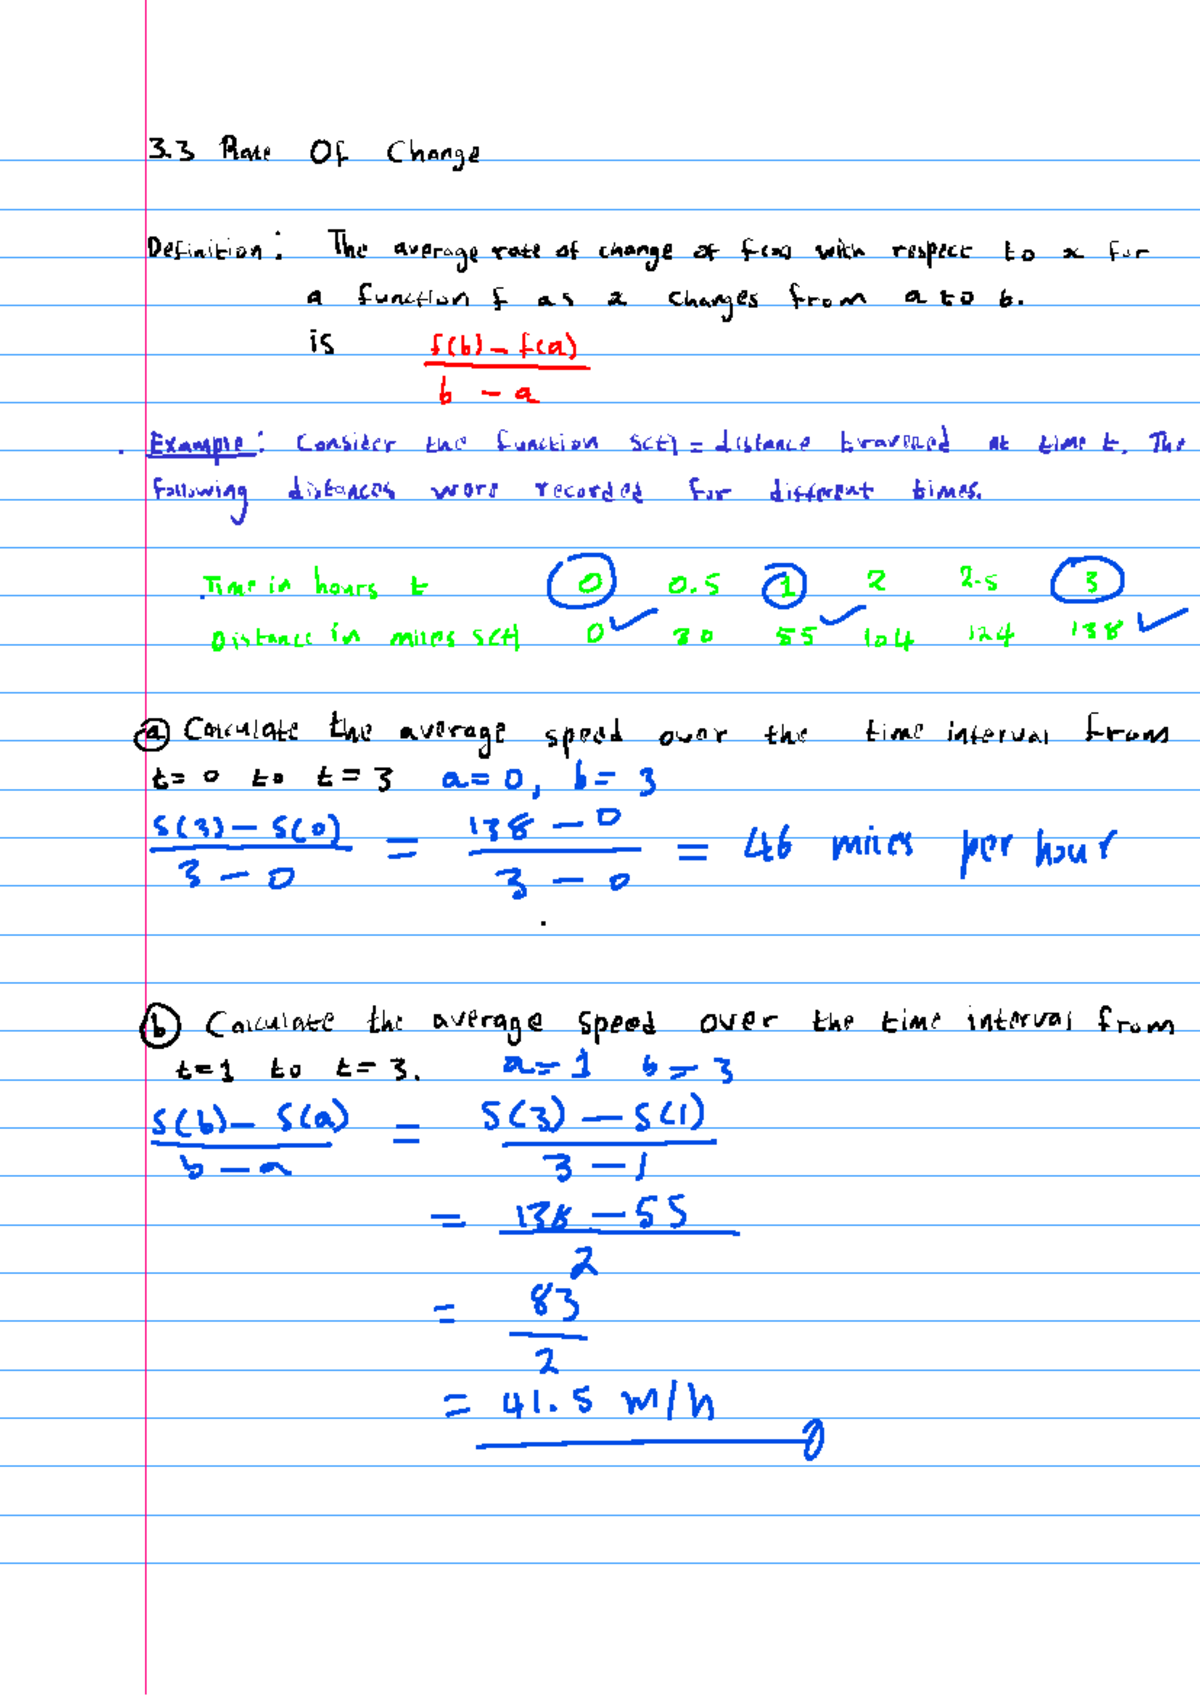 3.3 Rate Of Change
Definition: The average rate of change of f(x) with respect to x for
a function f as x changes from a to b.
is f(b) - f(a)
b - a
Example: Consider the function s(t) = distance travelled at time t. The
following distances were recorded for different times.
Time in hours t 0 0.5 1 2 2.5 3
Distance in miles s(t) 0 30 55 104 124 138
a Calculate the average speed over the time interval from
t = 0 to t = 3 a = 0, b = 3
s(3) - s(0) = 138 - 0 = 46 miles per hour
3 - 0 3 - 0
b Calculate the average speed over the time interval from
t=1 to t = 3. a = 1 b = 3
s(b) - s(a) = s(3) - s(1)
b - a 3 - 1
= 138 - 55
2
= 83
2
= 41.5 m/h